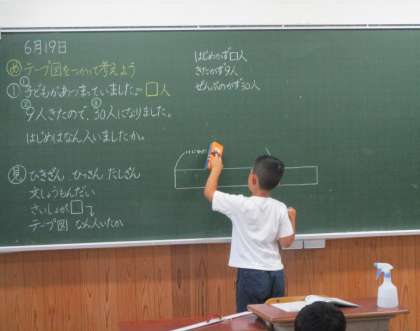 6月19日
め テープ図をつかって考えよう
① 子どもがあつまっていました。□人
② ③
9人きたので、30人になりました。
はじめはなん人いましたか。
見 ひきざん ひっさん たしざん
文しょうもんだい
さいしょが□で
テープ図 なん人いたか
はじめかず□人
きたかず9人
ぜんぶのかず30人
はじめの